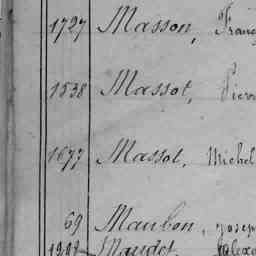 1727 Masson, Franç
1538 Massot, Pierr
1677 Massot, Michel
69 Maubon, Josep
Maudet, Alexa